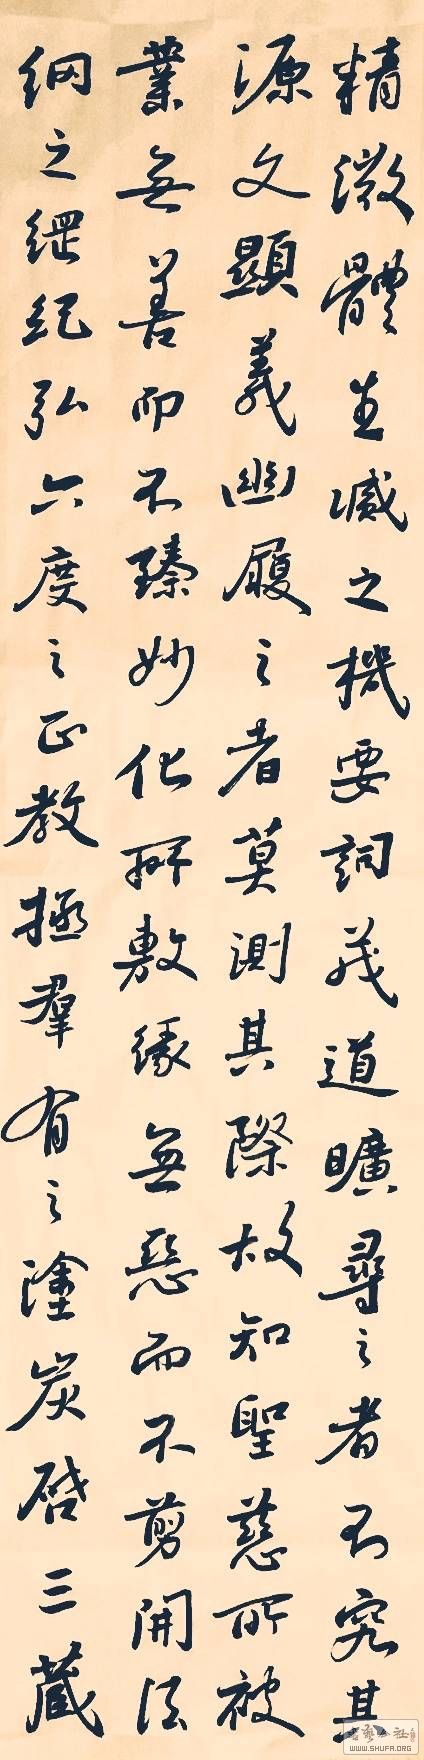 精微體生滅之機要詞茂道曠尋之者不究其
源文顯義幽履之者莫測其際故知聖慈所被
業無善而不臻妙化所敷緣無惡而不剪開法
網之綱紀弘六度之正教拯羣有之塗炭啓三藏
WWW.SHUFA.ORG